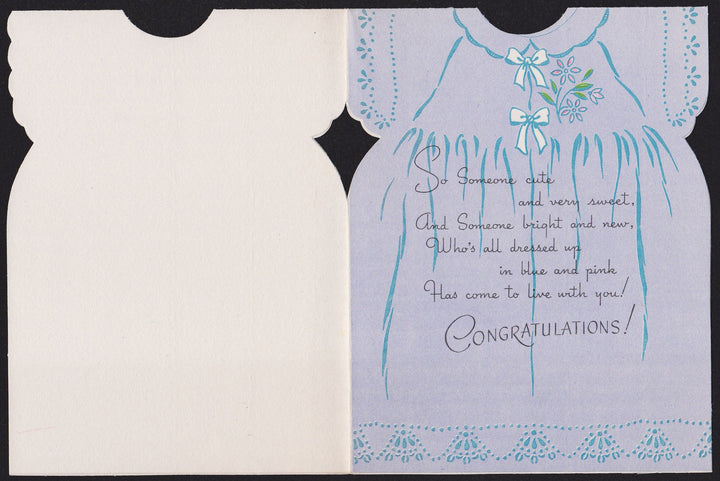 So Someone cute
and very sweet,
And Someone bright and new,
Who's all dressed up
in blue and pink
Has come to live with you!
CONGRATULATIONS!